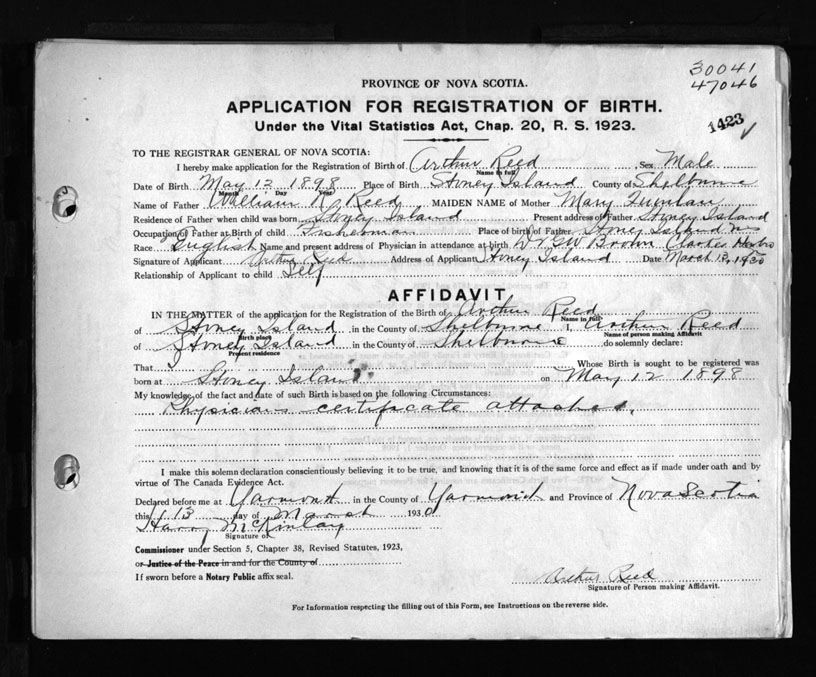 30041
47046
PROVINCE OF NOVA SCOTIA.
APPLICATION FOR REGISTRATION OF BIRTH.
1423
Under the Vital Statistics Act, Chap. 20, R. S. 1923.
TO THE REGISTRAR GENERAL OF NOVA SCOTIA:
I hereby make application for the Registration of Birth of Arthur Reed Sex Male
Name in full
Date of Birth May 12 1898 Place of Birth Stoney Island County of Shelburne
Month Day Year
Name of Father William R. Reed MAIDEN NAME of Mother Mary Quinlan
Residence of Father when child was born Stoney Island Present address of Father Stoney Island
Occupation of Father at Birth of child Fisherman Place of birth of Father Stoney Island NS
Race English Name and present address of Physician in attendance at birth Dr GW Brown Clarkes Harbo
Signature of Applicant Arthur Reed Address of Applicant Stoney Island Date March 13, 1930
Relationship of Applicant to child Self
AFFIDAVIT
IN THE MATTER of the application for the Registration of the Birth of Arthur Reed
Name in full
of Stoney Island in the County of Shelburne I, Arthur Reed
Birth place Name of person making Affidavit
of Stoney Island in the County of Shelburne do solemnly declare:
Present residence
That Whose Birth is sought to be registered was
born at Stoney Island on May 12 1898
My knowledge of the fact and date of such Birth is based on the following Circumstances:
Physicians certificate attached.
I make this solemn declaration conscientiously believing it to be true, and knowing that it is of the same force and effect as if made under oath and by
virtue of The Canada Evidence Act.
Declared before me at Yarmouth in the County of Yarmouth and Province of Nova Scotia
this 13 day of March 1930
Harry McKinlay
Signature of
Commissioner under Section 5, Chapter 38, Revised Statutes, 1923,
or Justice of the Peace in and for the County of
If sworn before a Notary Public affix seal.
Arthur Reed
Signature of Person making Affidavit.
For Information respecting the filling out of this Form, see Instructions on the reverse side.